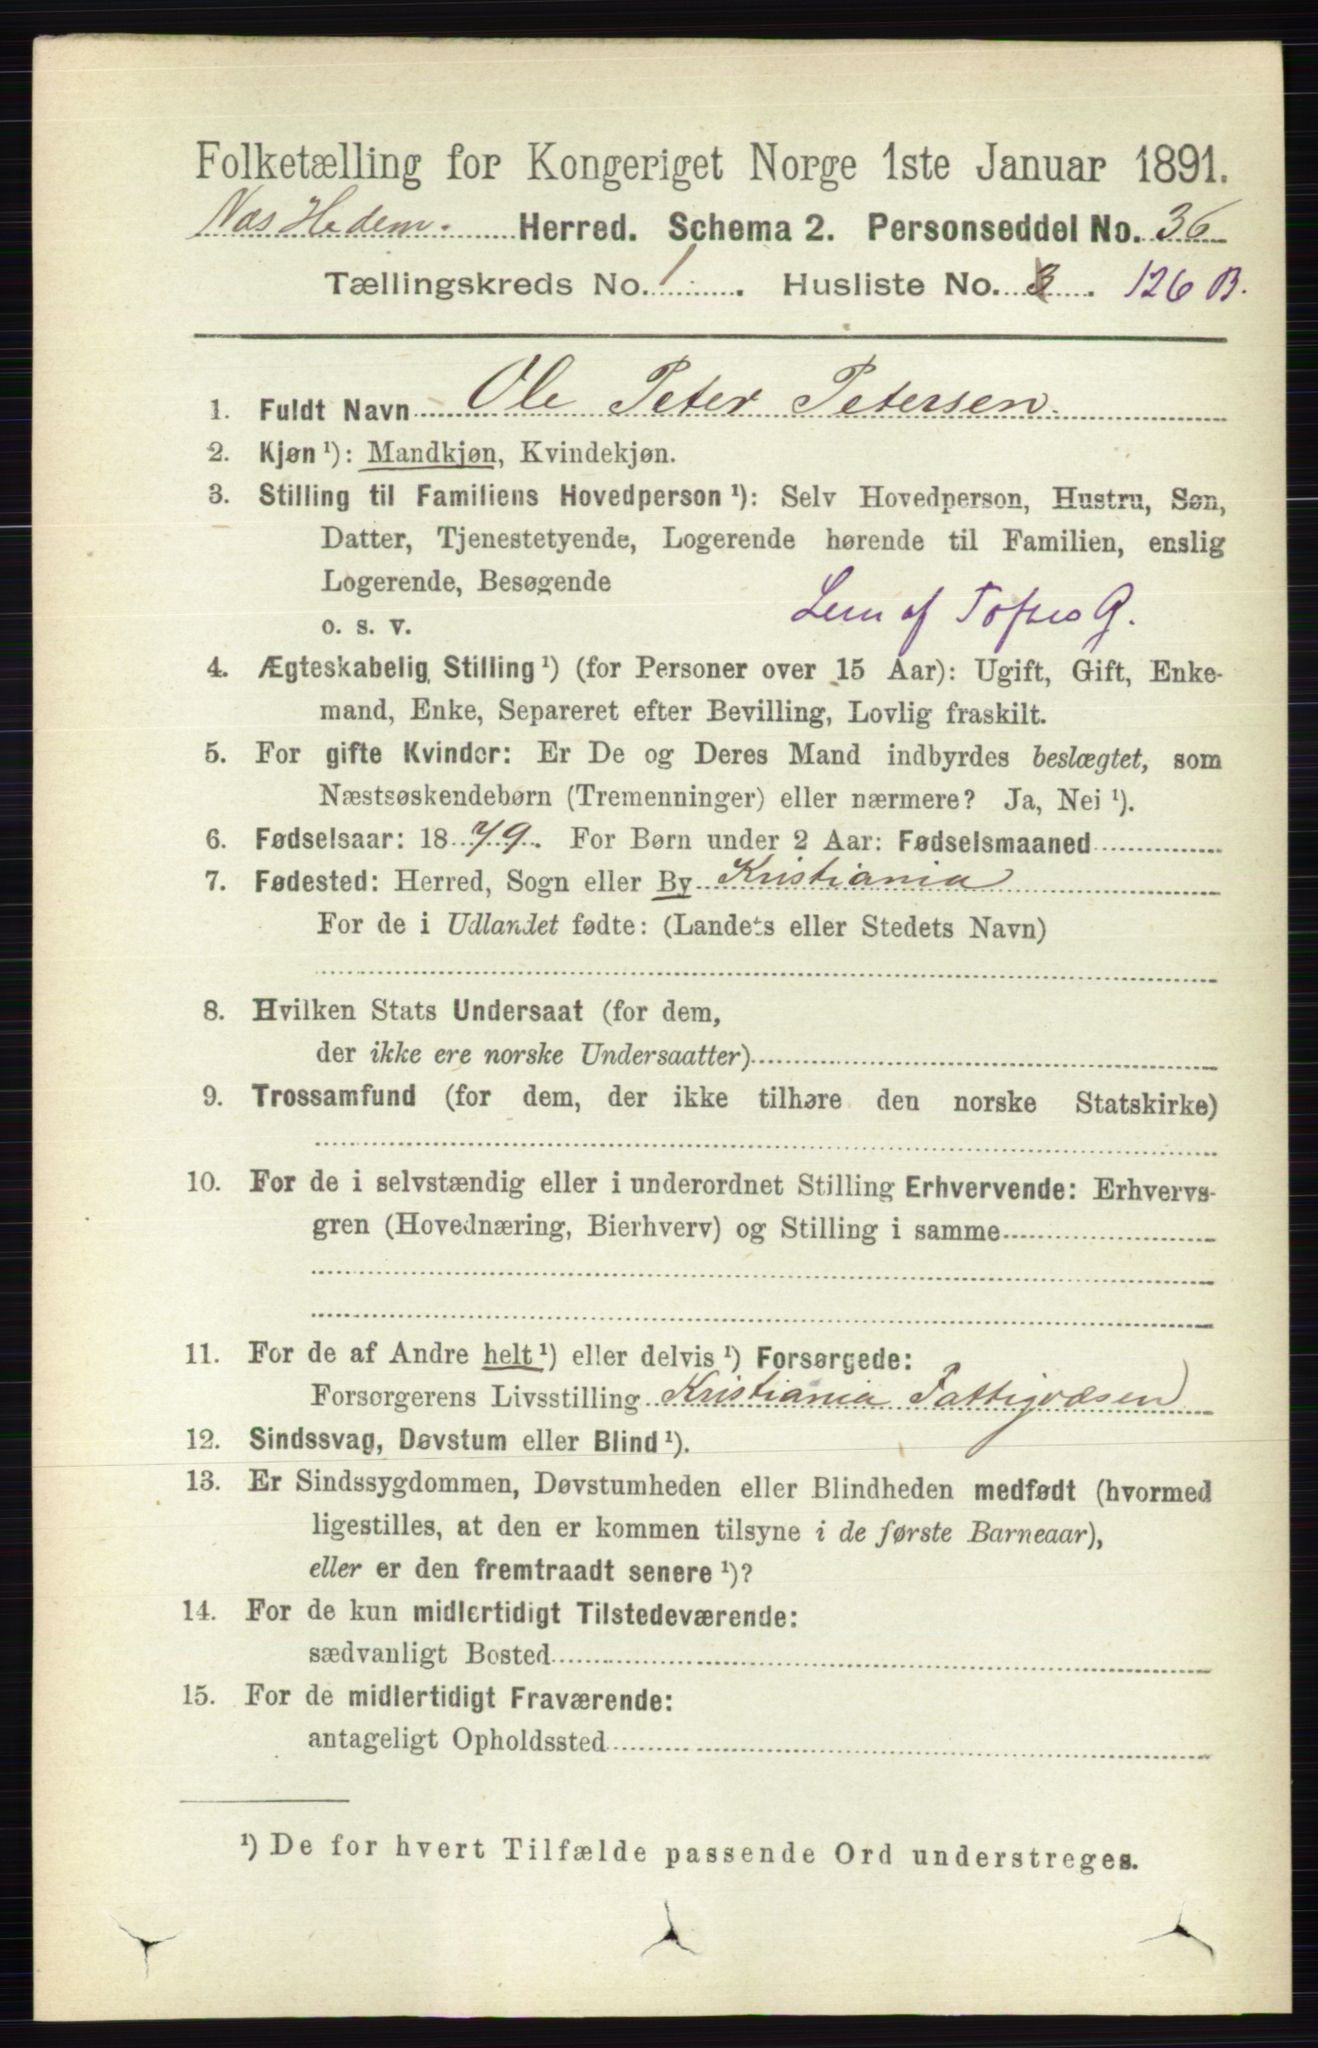 Folketælling for Kongeriget Norge 1ste Januar 1891.
Næs Hedem. Herred. Schema 2. Personseddel No. 36
Tællingskreds No. 1. Husliste No. 3. 126 B.
1. Fuldt Navn Ole Peter Petersen.
2. Kjøn ¹): Mandkjøn, Kvindekjøn.
3. Stilling til Familiens Hovedperson ¹): Selv Hovedperson, Hustru, Søn,
Datter, Tjenestetyende, Logerende hørende til Familien, enslig
Logerende, Besøgende
o. s. v. Lem af Toftes G.
4. Ægteskabelig Stilling ¹) (for Personer over 15 Aar): Ugift, Gift, Enke-
mand, Enke, Separeret efter Bevilling, Lovlig fraskilt.
5. For gifte Kvinder: Er De og Deres Mand indbyrdes beslægtet, som
Næstsøskendebørn (Tremenninger) eller nærmere? Ja, Nei ¹).
6. Fødselsaar: 1879. For Børn under 2 Aar: Fødselsmaaned
7. Fødested: Herred, Sogn eller By Kristiania
For de i Udlandet fødte: (Landets eller Stedets Navn)
8. Hvilken Stats Undersaat (for dem,
der ikke ere norske Undersaatter)
9. Trossamfund (for dem, der ikke tilhøre den norske Statskirke)
10. For de i selvstændig eller i underordnet Stilling Erhvervende: Erhvervs-
gren (Hovednæring, Bierhverv) og Stilling i samme
11. For de af Andre helt ¹) eller delvis ¹) Forsørgede:
Forsørgerens Livsstilling Kristiania Fattigvæsen
12. Sindssvag, Døvstum eller Blind ¹).
13. Er Sindssygdommen, Døvstumheden eller Blindheden medfødt (hvormed
ligestilles, at den er kommen tilsyne i de første Barneaar),
eller er den fremtraadt senere ¹)?
14. For de kun midlertidigt Tilstedeværende:
sædvanligt Bosted
15. For de midlertidigt Fraværende:
antageligt Opholdssted
¹) De for hvert Tilfælde passende Ord understreges.